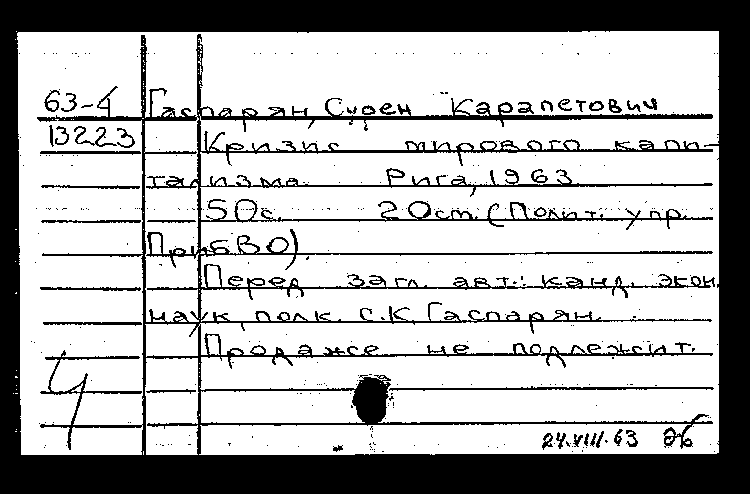 63-4 Гаспарян, Сурен Карапетович
13223 Кризис мирового капи-
тализма. Рига, 1963
50с. 20см. (Полит. упр.
ПрибВО).
Перед загл. авт.: канд. экон.
наук, полк. С.К. Гаспарян.
Продаже не подлежит.
Ч
24.VIII.63